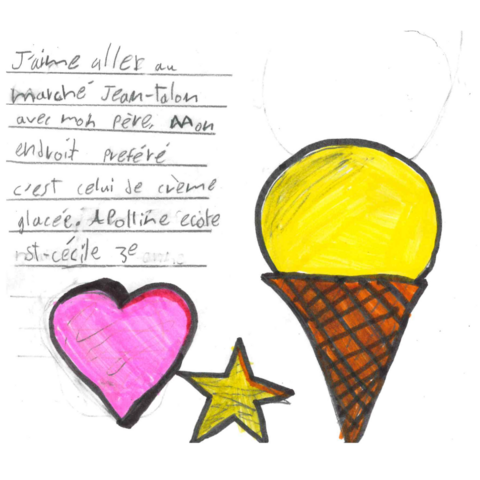 J'aime aller au
marché Jean-talon
avec mon père. Mon
endroit preféré
c'est celui de crème
glacée. Apolline ecole
st-cécile 3e